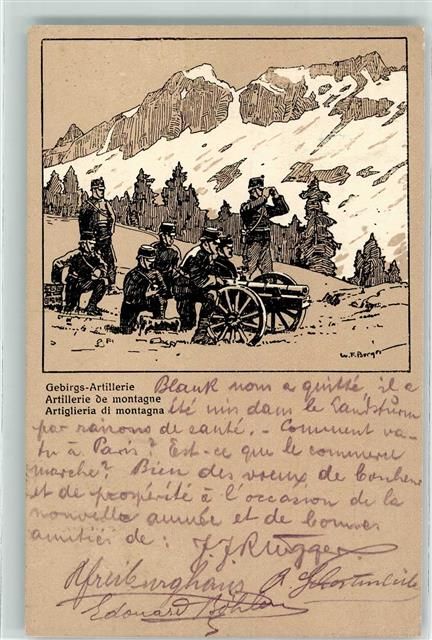 W. F. Burger
Gebirgs-Artillerie
Artillerie de montagne
Artiglieria di montagna
Blank nous a quitté il a
été mis dans le Landsturm
par raisons de santé. - Comment va-
tu à Paris? Est-ce que le commerce
marche? Bien des voeux de bonheur
et de prospérité à l'occasion de la
nouvelle année et de bonnes
amitiés de:
Edouard